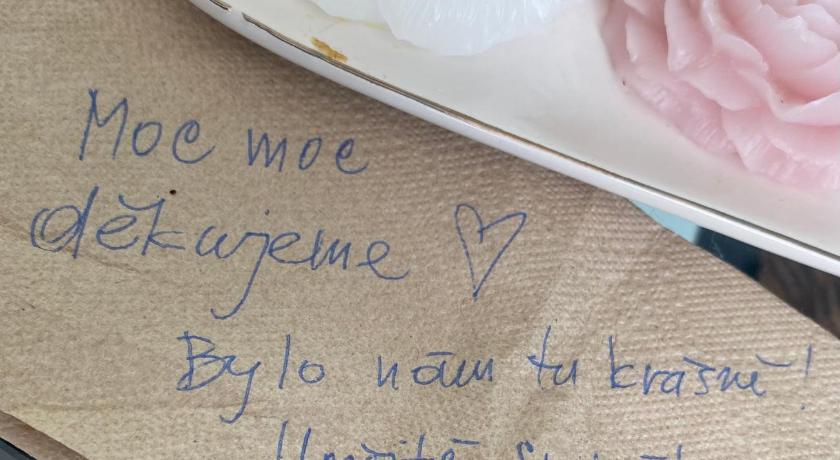 Moc moc
děkujeme ♡
Bylo nám tu krásně!
Určitě